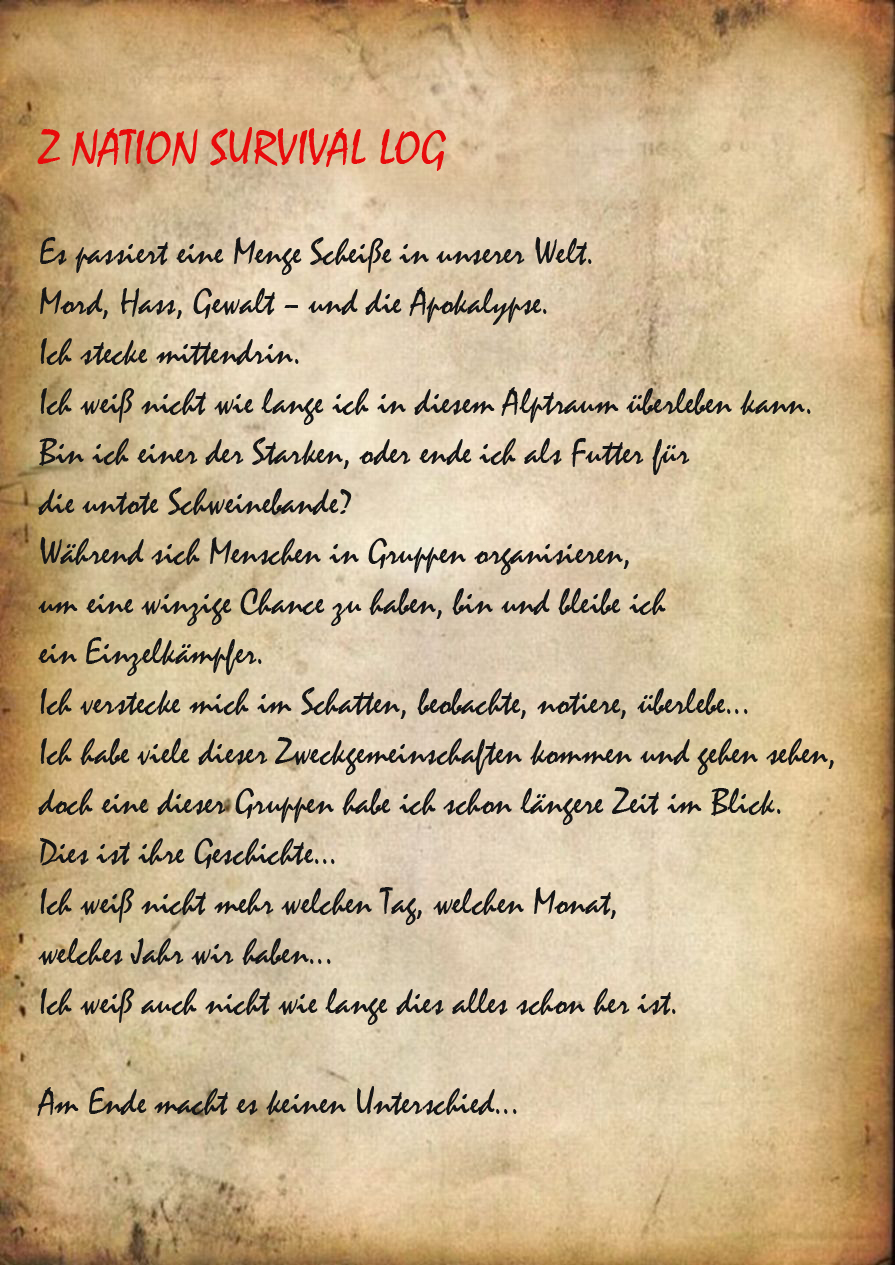 Z NATION SURVIVAL LOG
Es passiert eine Menge Scheiße in unserer Welt.
Mord, Hass, Gewalt – und die Apokalypse.
Ich stecke mittendrin.
Ich weiß nicht wie lange ich in diesem Alptraum überleben kann.
Bin ich einer der Starken, oder ende ich als Futter für
die untote Schweinebande?
Während sich Menschen in Gruppen organisieren,
um eine winzige Chance zu haben, bin und bleibe ich
ein Einzelkämpfer.
Ich verstecke mich im Schatten, beobachte, notiere, überlebe...
Ich habe viele dieser Zweckgemeinschaften kommen und gehen sehen,
doch eine dieser Gruppen habe ich schon längere Zeit im Blick.
Dies ist ihre Geschichte...
Ich weiß nicht mehr welchen Tag, welchen Monat,
welches Jahr wir haben...
Ich weiß auch nicht wie lange dies alles schon her ist.
Am Ende macht es keinen Unterschied...